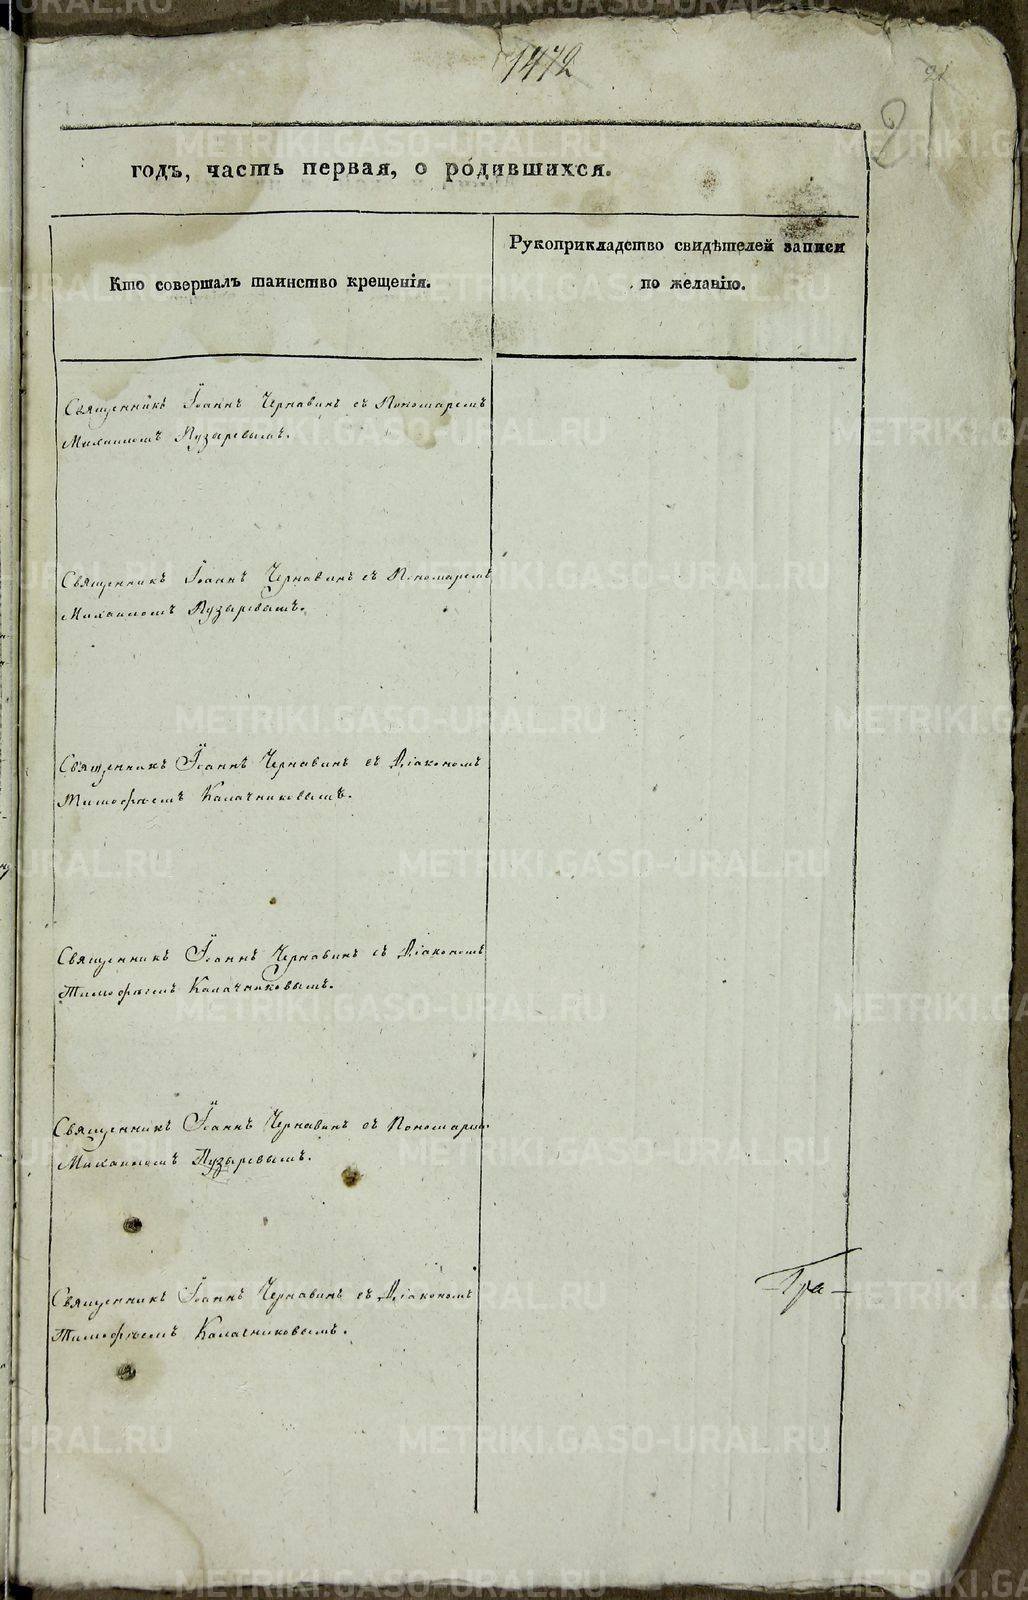 1472
21
21
годъ, часть первая, о родившихся.
Кто совершалъ таинство крещенія.
Рукоприкладство свидѣтелей записи
по желанію.
Священникъ Іоаннъ Чернавинъ съ Пономаремъ
Михаиломъ Пузыревымъ.
Священникъ Іоаннъ Чернавинъ съ Пономаремъ
Михаиломъ Пузыревымъ.
Священникъ Іоаннъ Чернавинъ съ Діакономъ
Тимофѣемъ Калачниковымъ.
Священникъ Іоаннъ Чернавинъ съ Діакономъ
Тимофѣемъ Калачниковымъ.
Священникъ Іоаннъ Чернавинъ съ Пономаремъ
Михаиломъ Пузыревымъ.
Священникъ Іоаннъ Чернавинъ съ Діакономъ
Тимофѣемъ Калачниковымъ.
METRIKI.GASO-URAL.RU